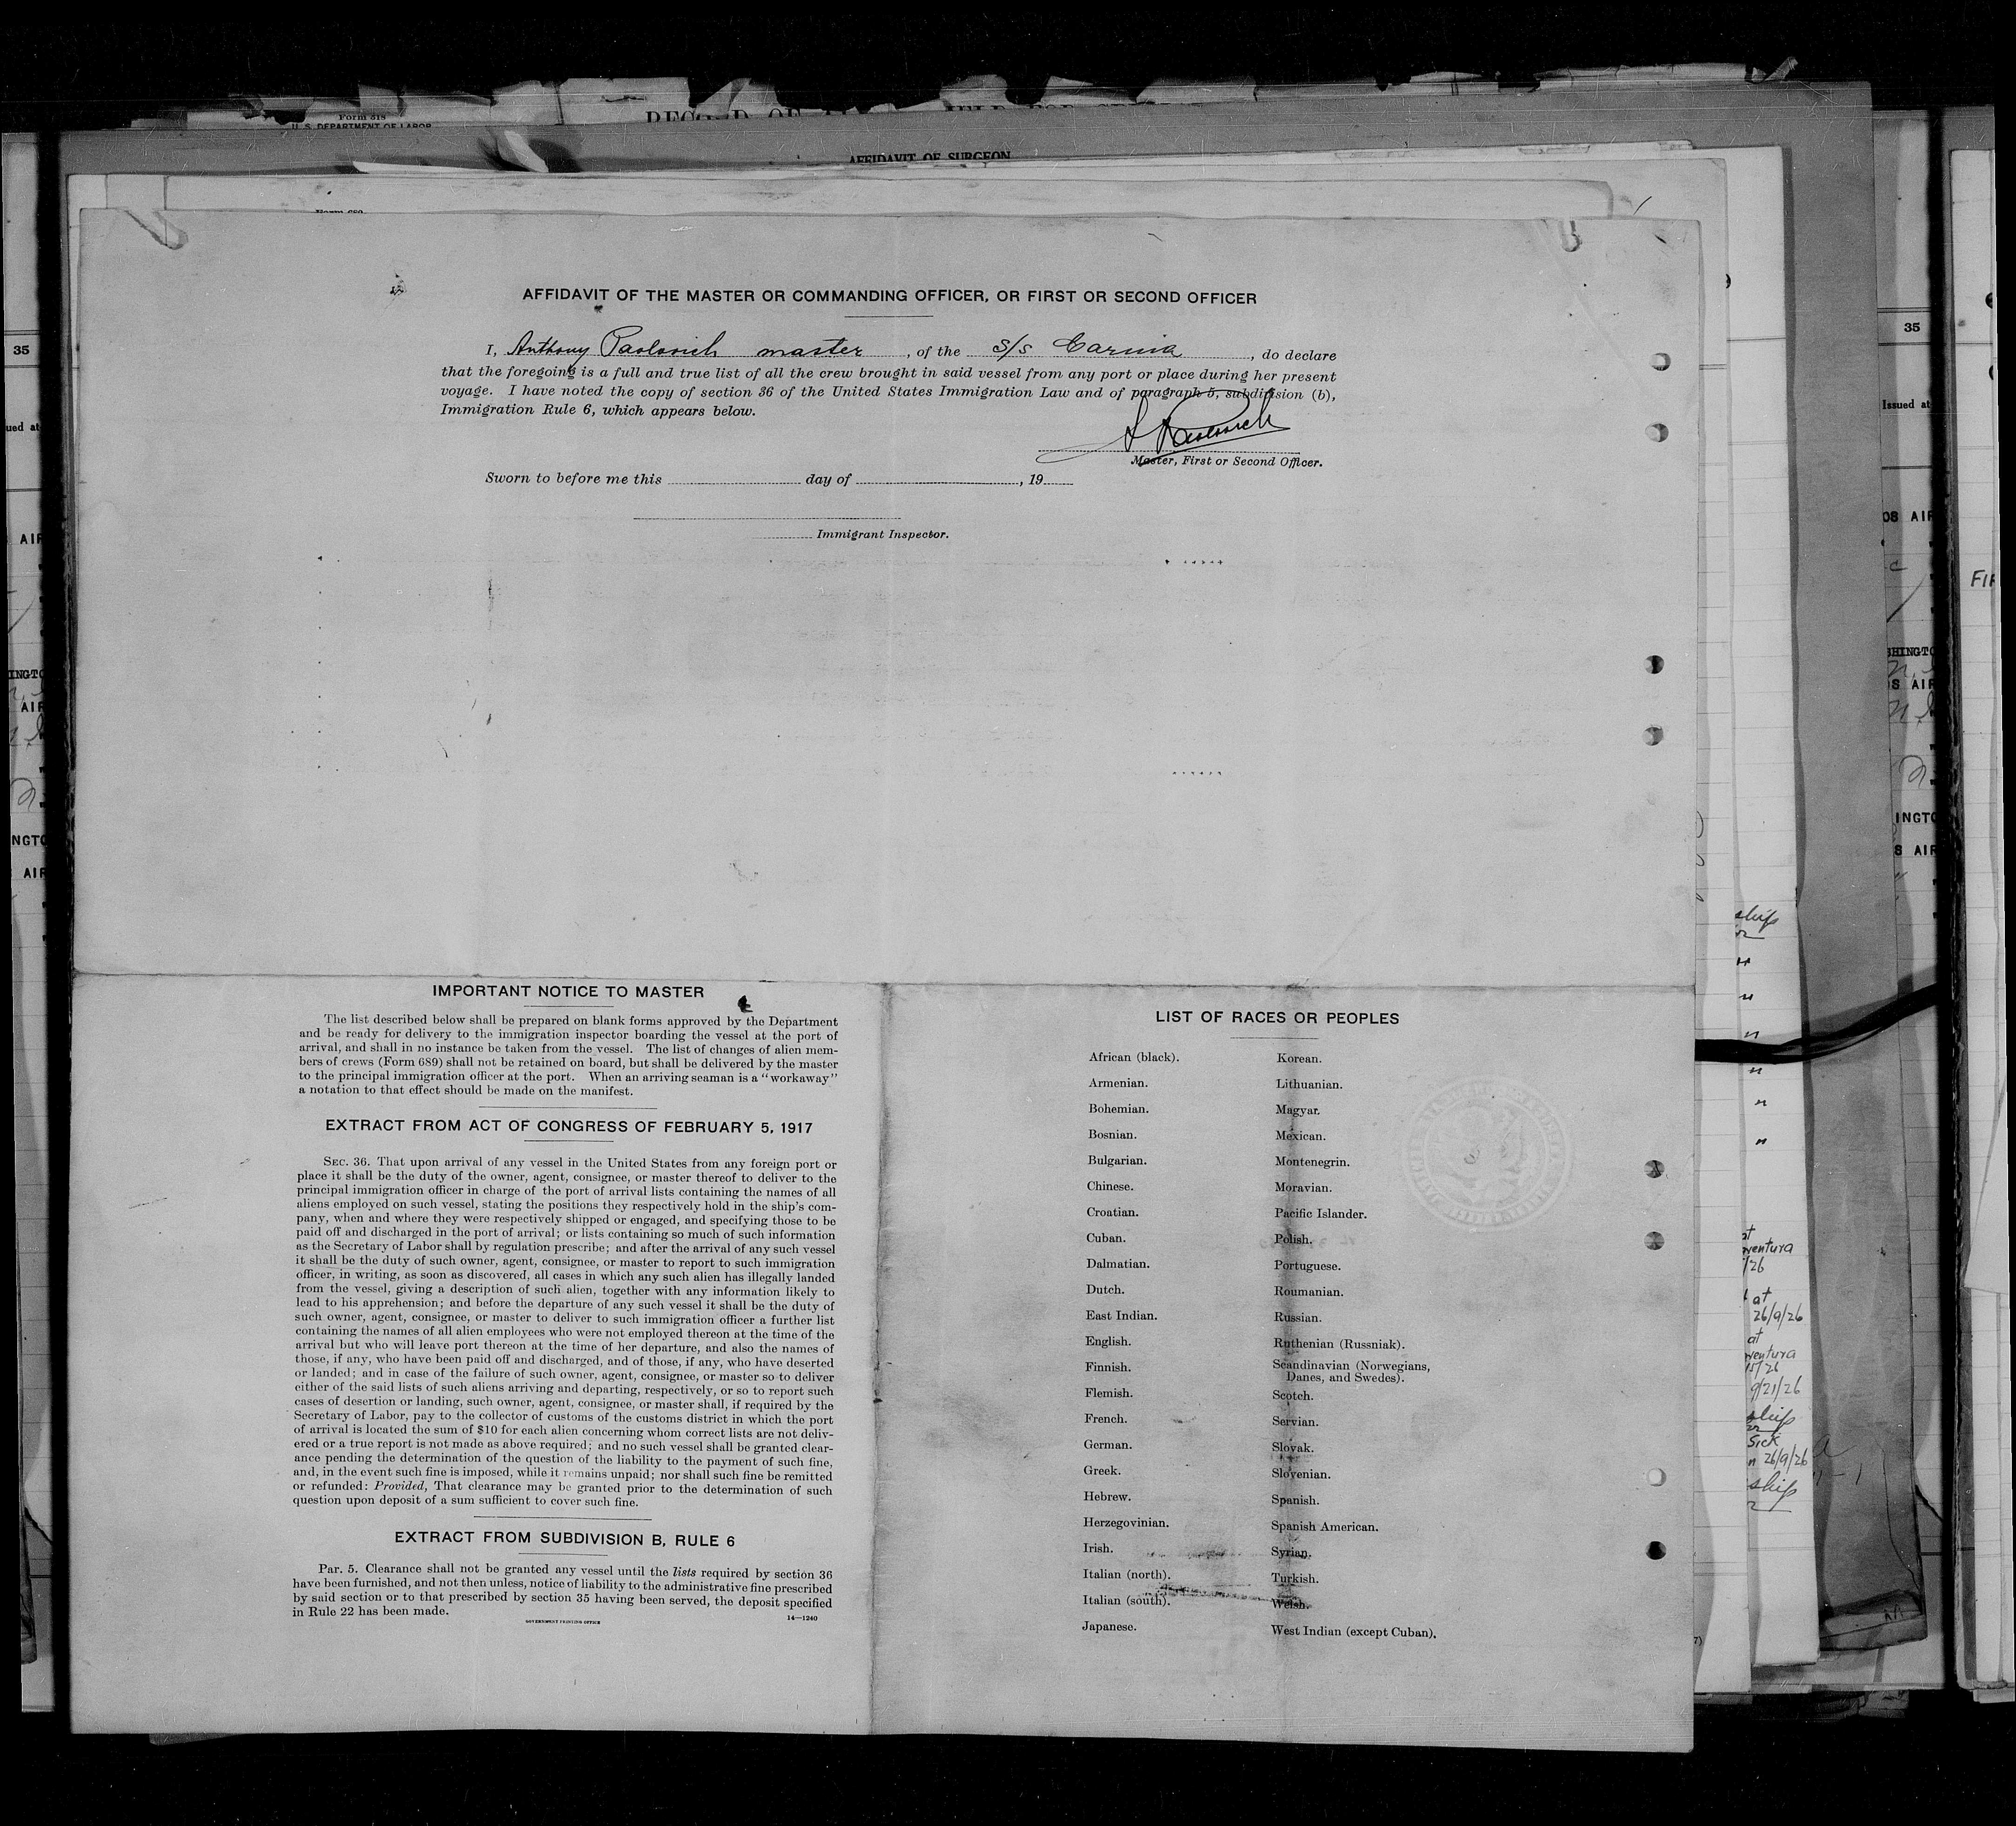 Form 618
U. S. DEPARTMENT OF LABOR
AFFIDAVIT OF SURGEON
AFFIDAVIT OF THE MASTER OR COMMANDING OFFICER, OR FIRST OR SECOND OFFICER
I, Anthony master , of the S/S , do declare
that the foregoing is a full and true list of all the crew brought in said vessel from any port or place during her present
voyage. I have noted the copy of section 36 of the United States Immigration Law and of paragraph 5, subdivision (b),
Immigration Rule 6, which appears below.
Master, First or Second Officer.
Sworn to before me this day of , 19
Immigrant Inspector.
IMPORTANT NOTICE TO MASTER
The list described below shall be prepared on blank forms approved by the Department
and be ready for delivery to the immigration inspector boarding the vessel at the port of
arrival, and shall in no instance be taken from the vessel. The list of changes of alien mem-
bers of crews (Form 689) shall not be retained on board, but shall be delivered by the master
to the principal immigration officer at the port. When an arriving seaman is a "workaway"
a notation to that effect should be made on the manifest.
EXTRACT FROM ACT OF CONGRESS OF FEBRUARY 5, 1917
SEC. 36. That upon arrival of any vessel in the United States from any foreign port or
place it shall be the duty of the owner, agent, consignee, or master thereof to deliver to the
principal immigration officer in charge of the port of arrival lists containing the names of all
aliens employed on such vessel, stating the positions they respectively hold in the ship's com-
pany, when and where they were respectively shipped or engaged, and specifying those to be
paid off and discharged in the port of arrival; or lists containing so much of such information
as the Secretary of Labor shall by regulation prescribe; and after the arrival of any such vessel
it shall be the duty of such owner, agent, consignee, or master to report to such immigration
officer, in writing, as soon as discovered, all cases in which any such alien has illegally landed
from the vessel, giving a description of such alien, together with any information likely to
lead to his apprehension; and before the departure of any such vessel it shall be the duty of
such owner, agent, consignee, or master to deliver to such immigration officer a further list
containing the names of all alien employees who were not employed thereon at the time of the
arrival but who will leave port thereon at the time of her departure, and also the names of
those, if any, who have been paid off and discharged, and of those, if any, who have deserted
or landed; and in case of the failure of such owner, agent, consignee, or master so to deliver
either of the said lists of such aliens arriving and departing, respectively, or so to report such
cases of desertion or landing, such owner, agent, consignee, or master shall, if required by the
Secretary of Labor, pay to the collector of customs of the customs district in which the port
of arrival is located the sum of $10 for each alien concerning whom correct lists are not deliv-
ered or a true report is not made as above required; and no such vessel shall be granted clear-
ance pending the determination of the question of the liability to the payment of such fine,
and, in the event such fine is imposed, while it remains unpaid; nor shall such fine be remitted
or refunded: Provided, That clearance may be granted prior to the determination of such
question upon deposit of a sum sufficient to cover such fine.
EXTRACT FROM SUBDIVISION B, RULE 6
Par. 5. Clearance shall not be granted any vessel until the lists required by section 36
have been furnished, and not then unless, notice of liability to the administrative fine prescribed
by said section or to that prescribed by section 35 having been served, the deposit specified
in Rule 22 has been made.
GOVERNMENT PRINTING OFFICE
14—1240
LIST OF RACES OR PEOPLES
African (black).
Armenian.
Bohemian.
Bosnian.
Bulgarian.
Chinese.
Croatian.
Cuban.
Dalmatian.
Dutch.
East Indian.
English.
Finnish.
Flemish.
French.
German.
Greek.
Hebrew.
Herzegovinian.
Irish.
Italian (north).
Italian (south).
Japanese.
Korean.
Lithuanian.
Magyar.
Mexican.
Montenegrin.
Moravian.
Pacific Islander.
Polish.
Portuguese.
Roumanian.
Russian.
Ruthenian (Russniak).
Scandinavian (Norwegians,
Danes, and Swedes).
Scotch.
Servian.
Slovak.
Slovenian.
Spanish.
Spanish American.
Syrian.
Turkish.
Welsh.
West Indian (except Cuban).
35
35
Issued at
ship
at
26/9/26
at
9/21/26
ship
Sick
26/9/26
ship